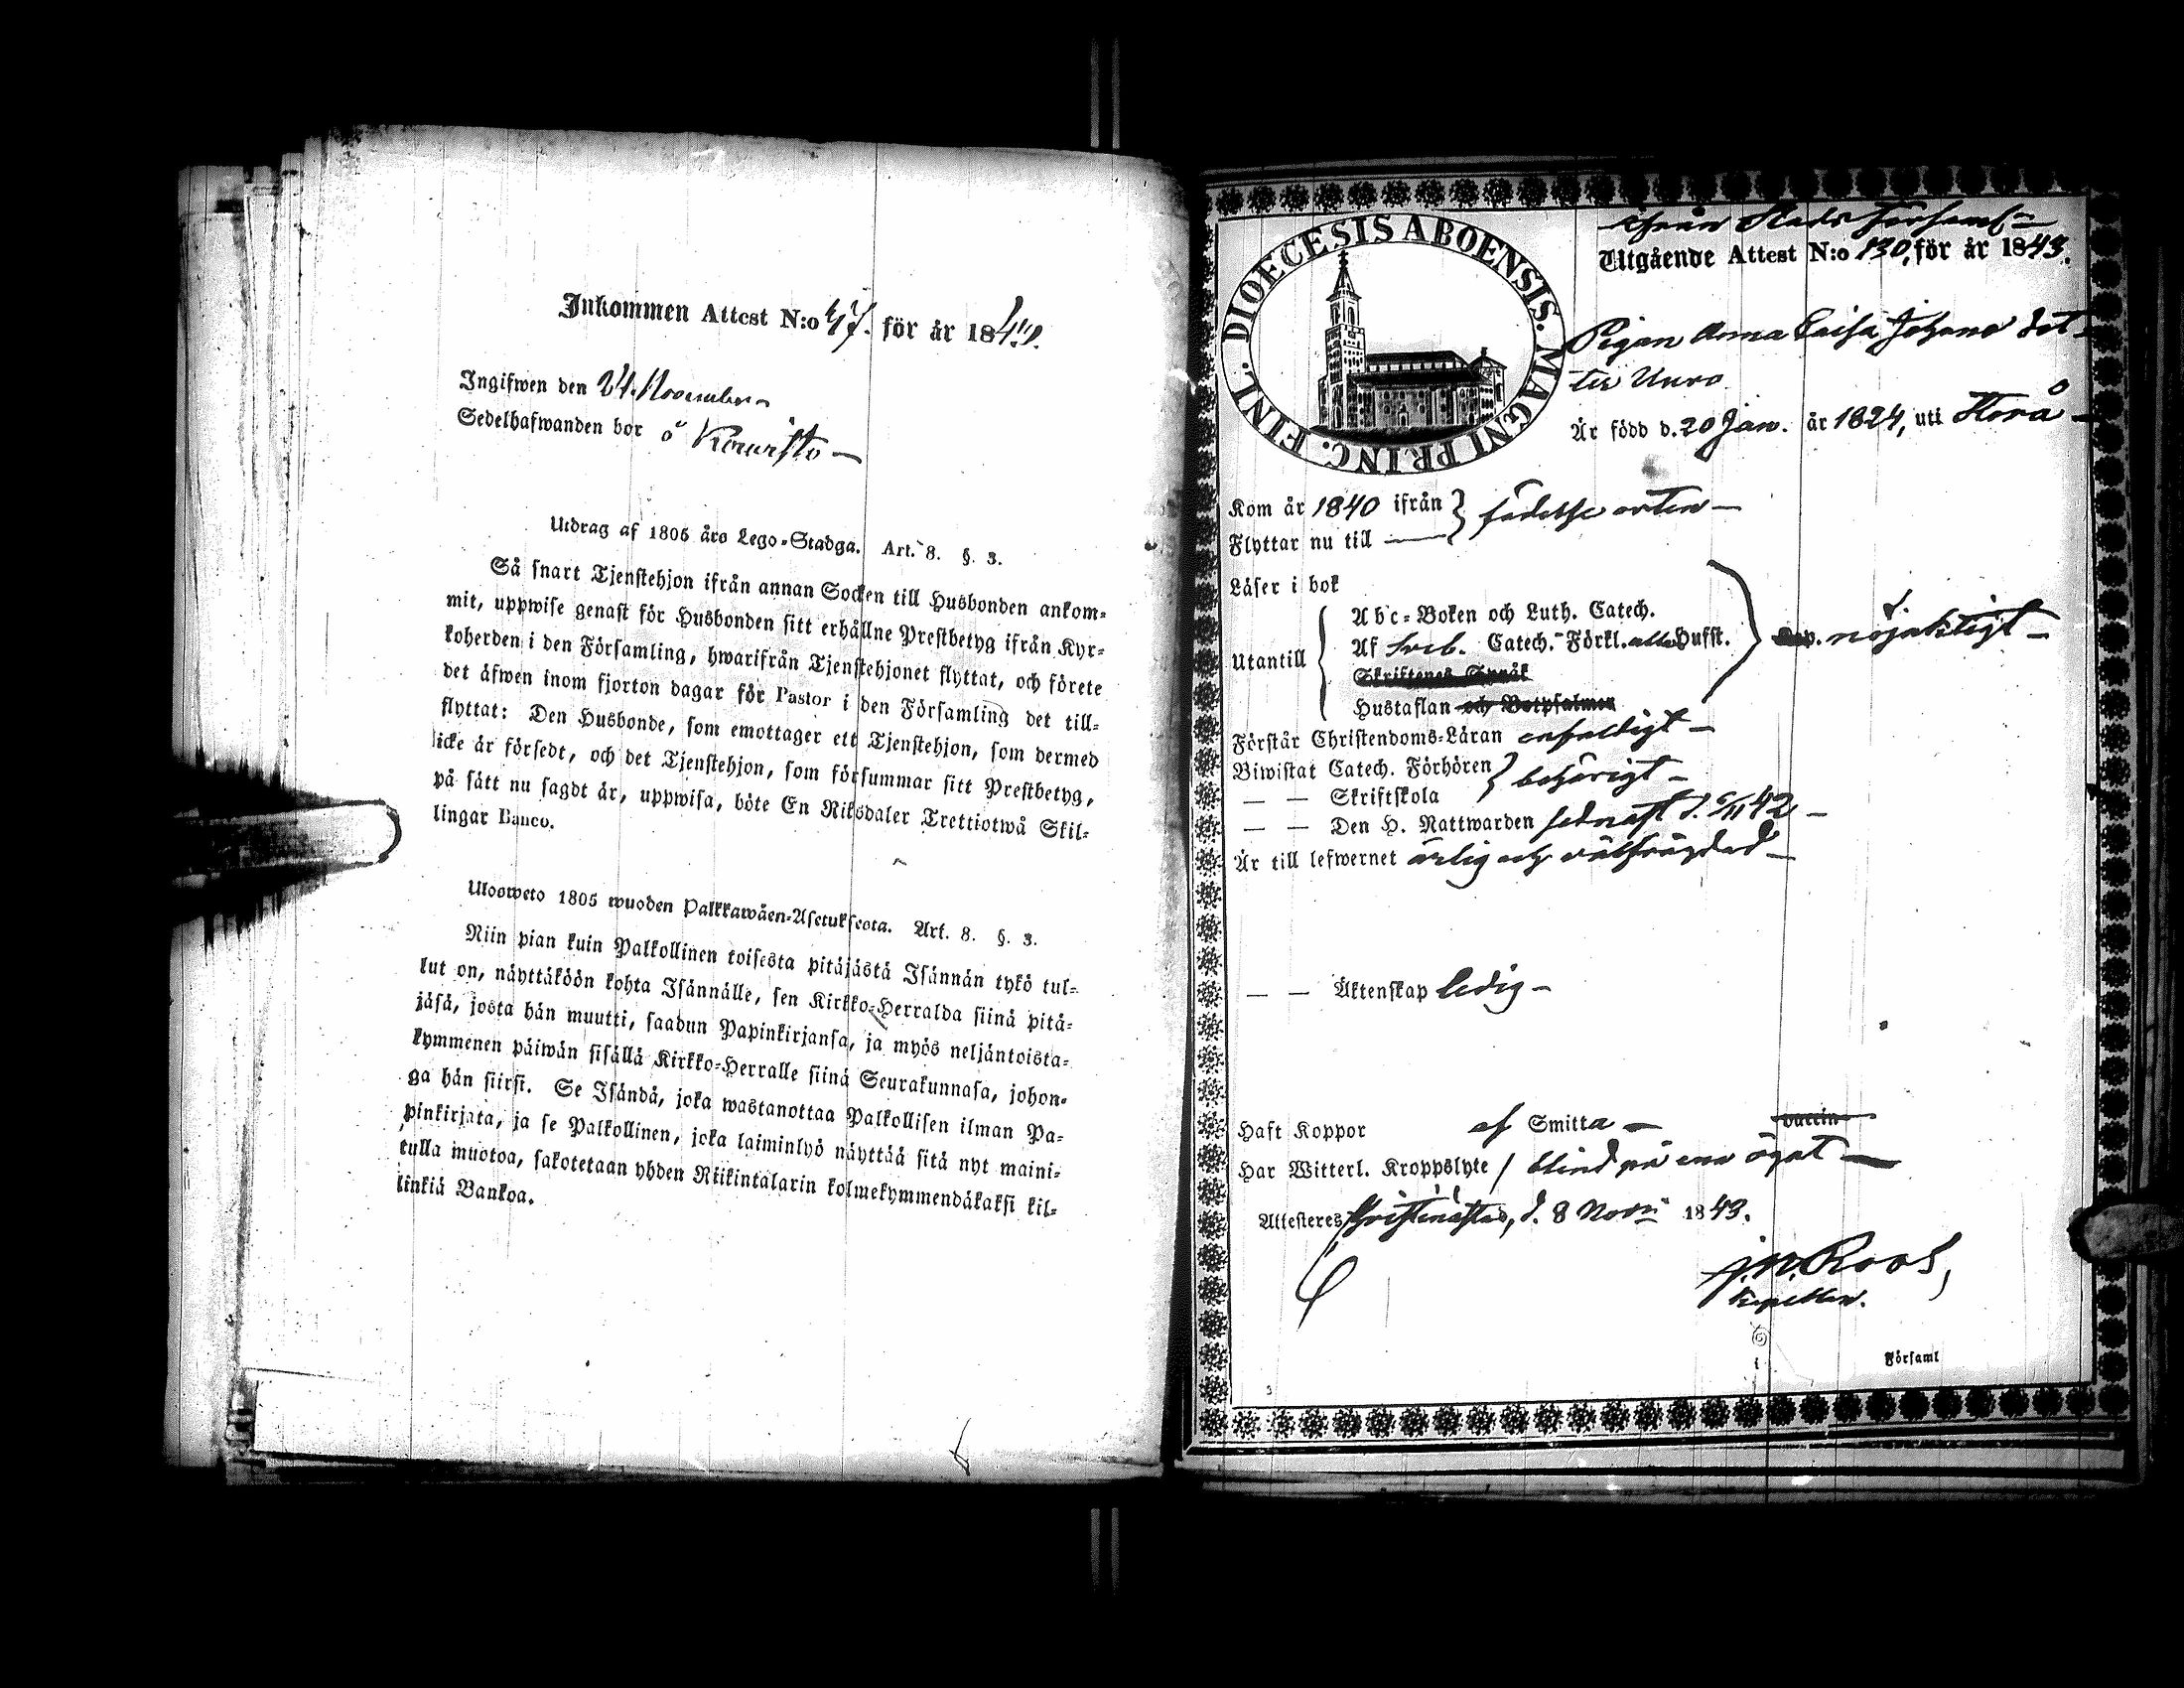 Inkommen Attest N:o 47. för år 1842.
Ingifwen den 24. November
Sedelhafwanden bor å Kouvisto
Utdrag af 1805 års Lego-Stadga. Art. 8. §. 3.
Så snart Tjenstehjon ifrån annan Socken till Husbonden ankom-
mit, uppwise genast för Husbonden sitt erhållne Prestbetyg ifrån Kyr-
koherden i den Församling, hwarifrån Tjenstehjonet flyttat, och förete
det äfwen inom fjorton dagar för Pastor i den Församling det till-
flyttat: Den Husbonde, som emottager ett Tjenstehjon, som dermed
icke är försedt, och det Tjenstehjon, som försummar sitt Prestbetyg,
på sätt nu sagdt är, uppwisa, böte En Riksdaler Trettiotwå Skil-
lingar Banco.
Ulosweto 1805 wuoden Palkkawäen-Asetuksesta. Art. 8. §. 3.
Niin pian kuin Palkollinen toisesta pitäjästä Isännän tykö tul-
lut on, näyttäköön kohta Isännälle, sen Kirkko-Herralda siinä pitä-
jäsä, josta hän muutti, saadun Papinkirjansa, ja myös neljäntoista-
kymmenen päiwän sisällä Kirkko-Herralle siinä Seurakunnasa, johon-
ga hän siirsi. Se Isändä, joka wastanottaa Palkollisen ilman Pa-
pinkirjata, ja se Palkollinen, joka laiminlyö näyttää sitä nyt maini-
tulla muotoa, sakotetaan yhden Riikintalarin kolmekymmendäkaksi kil-
linkiä Bankoa.
DIOECESIS ABOENSIS. MAGNI PRINC. FINL.
ifrån Stads församl
Utgående Attest N:o 130, för år 1843.
Pigan Anna Caisa Johans dot-
ter Uuro
Är född d. 20 Jan. år 1824, uti Storå
Kom år 1840 ifrån } födelse orten
Flyttar nu till
Läser i bok
Abc-Boken och Luth. Catech.
Utantill Af Sveb. Catech. Förkl. alla Hufst. nöjaktigt
Skriftenes Språk
Hustaflan och Botpsalmen
Förstår Christendoms-Läran enfaldigt
Biwistat Catech. Förhören } behörigt
— — Skriftskola
— — Den H. Nattwarden sednast d. 6/11 42
Är till lefwernet ärlig och välfrägdad
— — Äktenskap ledig
Haft Koppor af Smitta vaccin
Har Witterl. Kroppslyte / blind på ena ögat
Attesteres Christinestad, d. 8 Nov. 1843.
J. W. Roos,
Kapellan.
i Församl
3